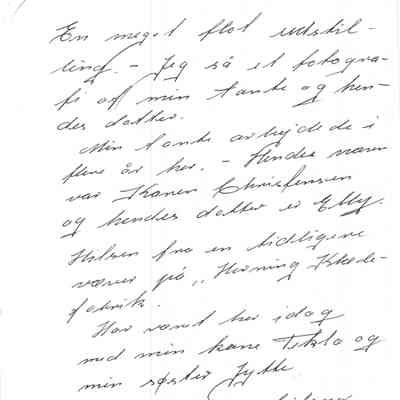 En meget flot udstil-
ling. - Jeg så et fotogra-
fi af min tante og hen-
des datter.
Min tante arbejdede i
flere år her. - Hendes navn
var Karen Christensen
og hendes datter er Elly.
Hilsen fra en tidligere
væver på "Herning Klæde-
fabrik.
Har været her idag
med min kone Tekla og
min søster Jytte